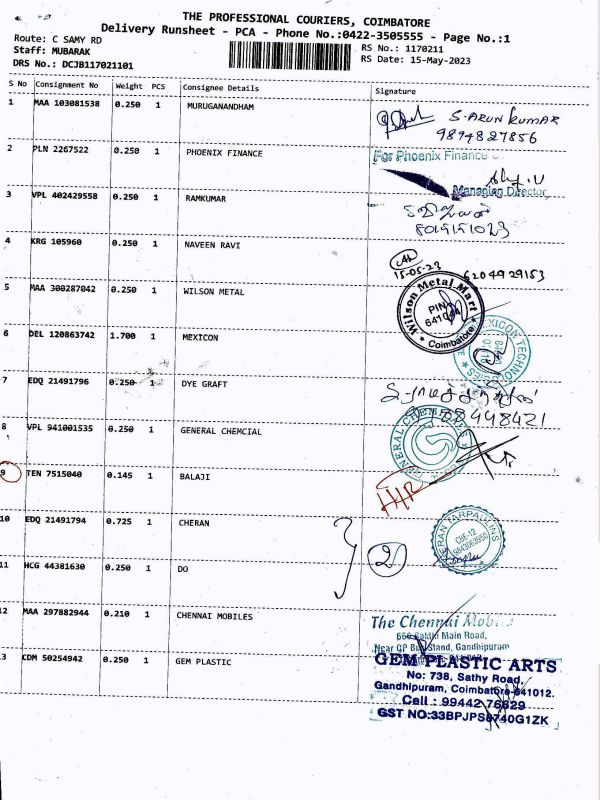 THE PROFESSIONAL COURIERS, COIMBATORE
Delivery Runsheet - PCA - Phone No.:0422-3505555 - Page No.:1
Route: C SAMY RD
RS No.: 1170211
Staff: MUBARAK
RS Date: 15-May-2023
DRS No.: DCJB117021101
S No Consignment No Weight PCS Consignee Details Signature
1 MAA 103081538 0.250 1 MURUGANANDHAM
S. ARUN KUMAR
9894827856
2 PLN 2267522 0.250 1 PHOENIX FINANCE
For Phoenix Finance
Managing Director
3 VPL 402429558 0.250 1 RAMKUMAR
4 KRG 105960 0.250 1 NAVEEN RAVI
15-05-23 6204929153
5 MAA 300287042 0.250 1 WILSON METAL
Wilson Metal Mart
PIN
Coimbatore
6 DEL 120863742 1.700 1 MEXICON
7 EDQ 21491796 0.250 1 DYE GRAFT
88448421
8 VPL 941001535 0.250 1 GENERAL CHEMCIAL
9 TEN 7515040 0.145 1 BALAJI
10 EDQ 21491794 0.725 1 CHERAN
2
TARPAULINS
CBE-12
11 HCG 44381630 0.250 1 DO
12 MAA 297882944 0.210 1 CHENNAI MOBILES
The Chennai
Main Road,
Near GP Bus Stand, Gandhipuram
3 CDM 50254942 0.250 1 GEM PLASTIC
GEM PLASTIC ARTS
No: 738, Sathy Road,
Gandhipuram, Coimbatore-641012.
Cell : 99442 76629
GST NO:33BPJPS6740G1ZK